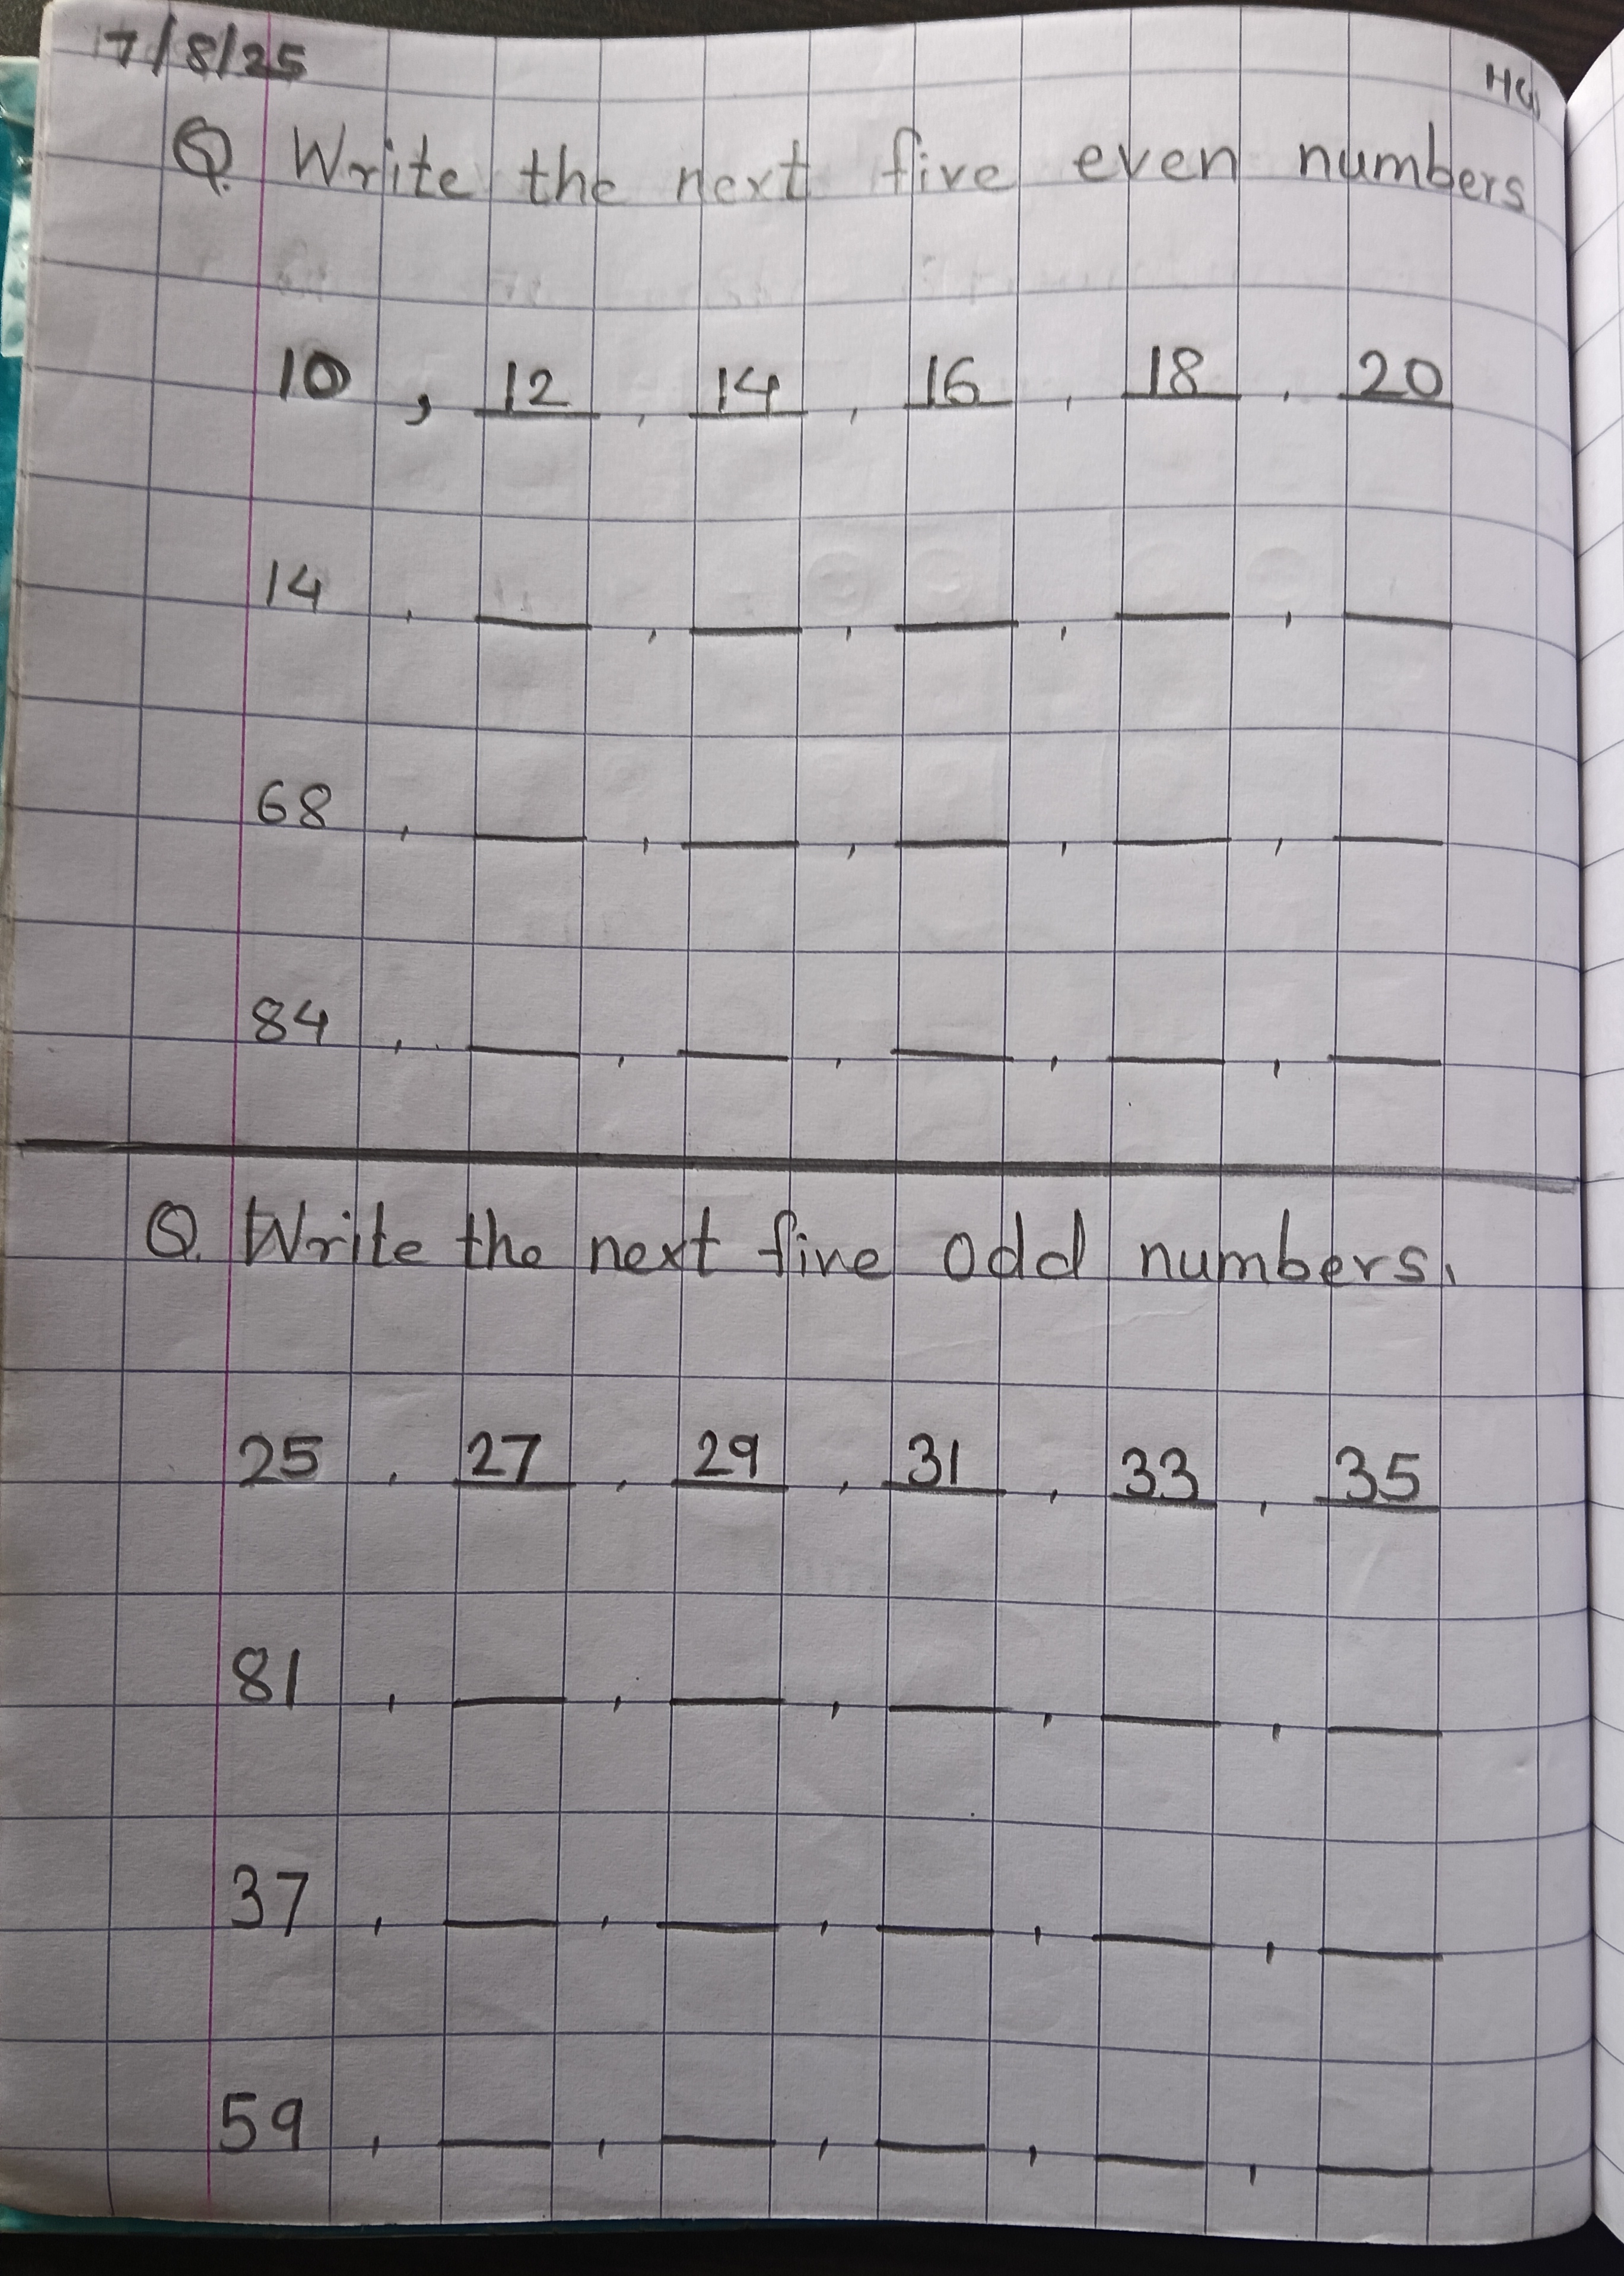 7/8/25 HW
Q. Write the next five even numbers
10 , 12 , 14 , 16 , 18 , 20
14 , __ , __ , __ , __ , __
68 , __ , __ , __ , __ , __
84 , __ , __ , __ , __ , __
Q. Write the next five odd numbers.
25 , 27 , 29 , 31 , 33 , 35
81 , __ , __ , __ , __ , __
37 , __ , __ , __ , __ , __
59 , __ , __ , __ , __ , __